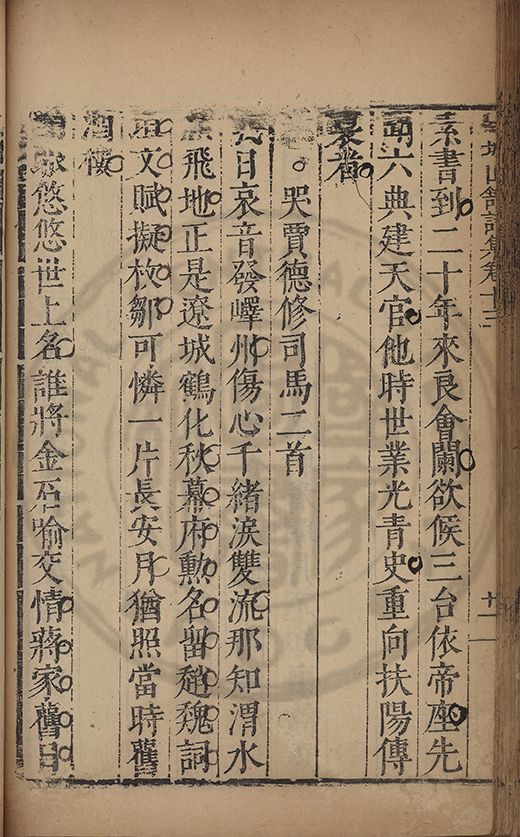 城山舘詩集卷十
十一
素書到二十年來良會闌欲候三台依帝座先
六典建天官他時世業光青史重向扶陽傳
裏看
哭賈德修司馬二首
日哀音發嶧州傷心千緒淚雙流那知渭水
熊飛地正是遼城鶴化秋幕府勳名留趙魏詞
壇文賦擬枚鄒可憐一片長安月猶照當時舊
酒樓
悠悠世上名誰將金石喻交情蔣家舊日